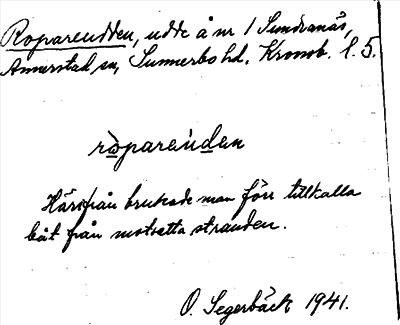 Ropareudden, udde å nr 1 Sundranäs,
Annerstad sn, Sunnerbo hd, Kronob. l. 5.
ròpareùden
Härifrån brukade man förr tillkalla
båt från motsatta stranden.
O. Segerbäck 1941.